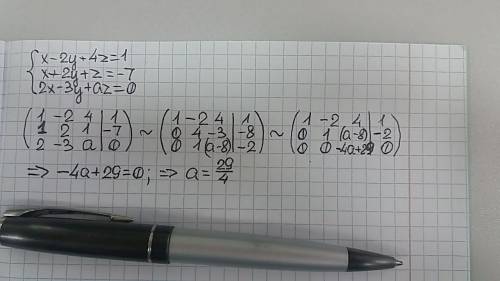 x-2y+4z=1
x+2y+z=-7
2x-3y+az=0
( 1 -2 4 | 1 ) ~ ( 1 -2 4 | 1 ) ~ ( 1 -2 4 | 1 )
( 1 2 1 | -7 ) ( 0 4 -3 | -8 ) ( 0 1 (a-8) | -2 )
( 2 -3 a | 0 ) ( 0 1 (a-8) | -2 ) ( 0 0 -4a+29 | 0 )
=> -4a+29=0; => a=29/4